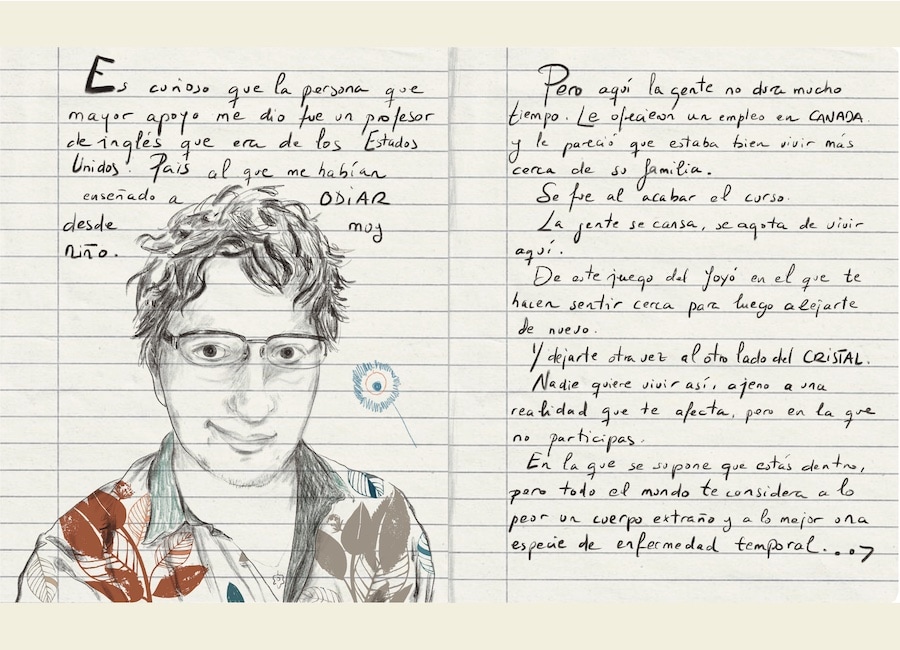 Es curioso que la persona que
mayor apoyo me dio fue un profesor
de inglés que era de los Estados
Unidos. País al que me habían
enseñado a ODiAR
desde muy
niño.
Pero aquí la gente no dura mucho
tiempo. Le ofrecieron un empleo en CANADA.
y le pareció que estaba bien vivir más
cerca de su familia.
Se fue al acabar el curso.
La gente se cansa, se agota de vivir
aquí.
De este juego del Yoyó en el que te
hacen sentir cerca para luego alejarte
de nuevo.
Y dejarte otra vez al otro lado del CRISTAL.
Nadie quiere vivir así, ajeno a una
realidad que te afecta, pero en la que
no participas.
En la que se supone que estás dentro,
pero todo el mundo te considera a lo
peor un cuerpo extraño y a lo mejor una
especie de enfermedad temporal...